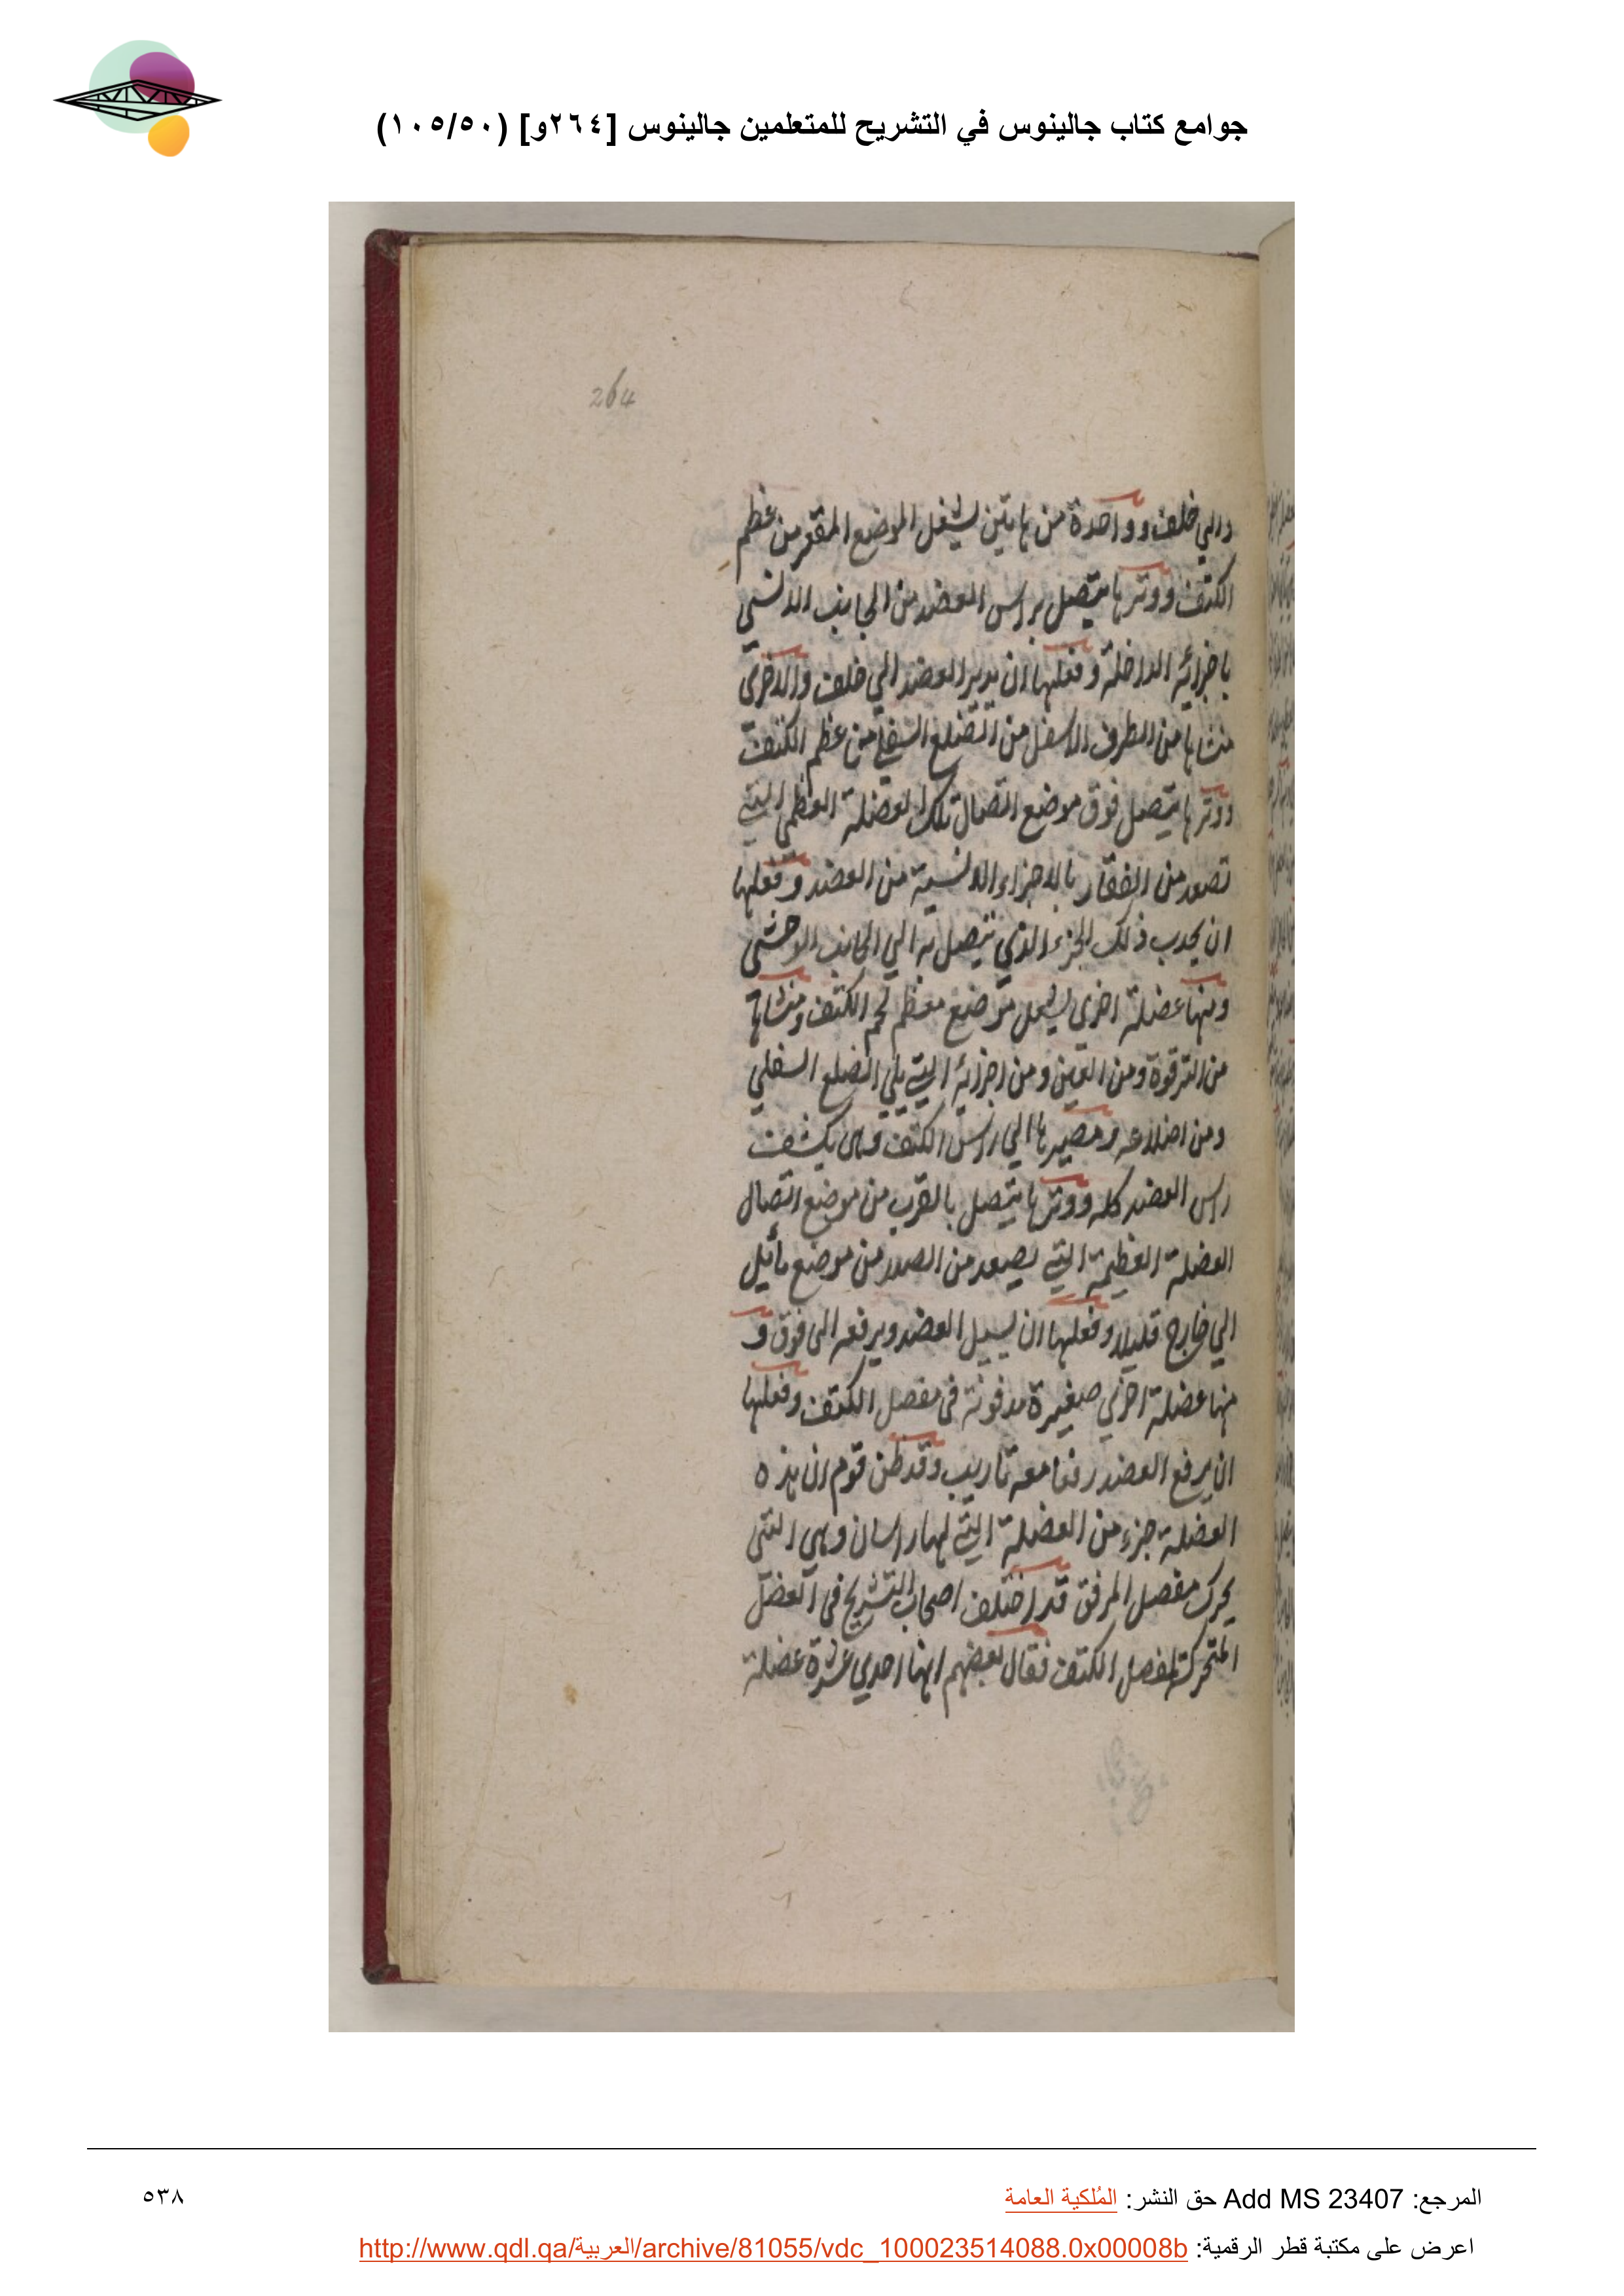 جوامع كتاب جالينوس في التشريح للمتعلمين جالينوس [٢٦٤و] (١٠٥/٥٠)
264
والي خلف وواحدة من هاتين يشغل الموضع المقعر من عظم
الكتف ووترها يتصل براس العضد من الجانب الانسي
باجزائه الداخلة وفعلها ان يدير العضد الي خلف والاخرى
منشاها من الطرف الاسفل من الضلع السفلي من عظم الكتف
ووترها يتصل فوق موضع اتصال تلك العضلة العظمى التي
تصعد من الفقار بالاجزاء الانسية من العضد وفعلها
ان يجدب ذلك الجزء الذي يتصل به الي الجانب الوحشي
ومنها عضلة اخرى موضع معظم لحم الكتف ومنشاها
من الترقوة ومن العين ومن اجزائه التي يلي الضلع السفلي
ومن اضلاعه ومصيرها الي راس الكتف وهى يكشف
راس العضد كله ووترها يتصل بالقرب من موضع اتصال
العضلة العظيمة التي يصعد من الصدر من موضع مائل
الي خارج قليلا وفعلها ان يسيل العضد ويرفعه الى فوق و
منها عضلة اخري صغيرة مدفونة فى مفصل الكتف وفعلها
ان يرفع العضد رفعا معه تاريب وقد ظن قوم ان هذه
العضلة جزء من العضلة التي لها راسان وهي التى
يحرك مفصل المرفق قد اختلف اصحاب التشريح فى العضل
المتحركة لمفصل الكتف فقال بعضهم انها احدي عشرة عضلة
المرجع: Add MS 23407 حق النشر: المُلكية العامة
٥٣٨
اعرض على مكتبة قطر الرقمية: http://www.qdl.qa/العربية/archive/81055/vdc_100023514088.0x00008b